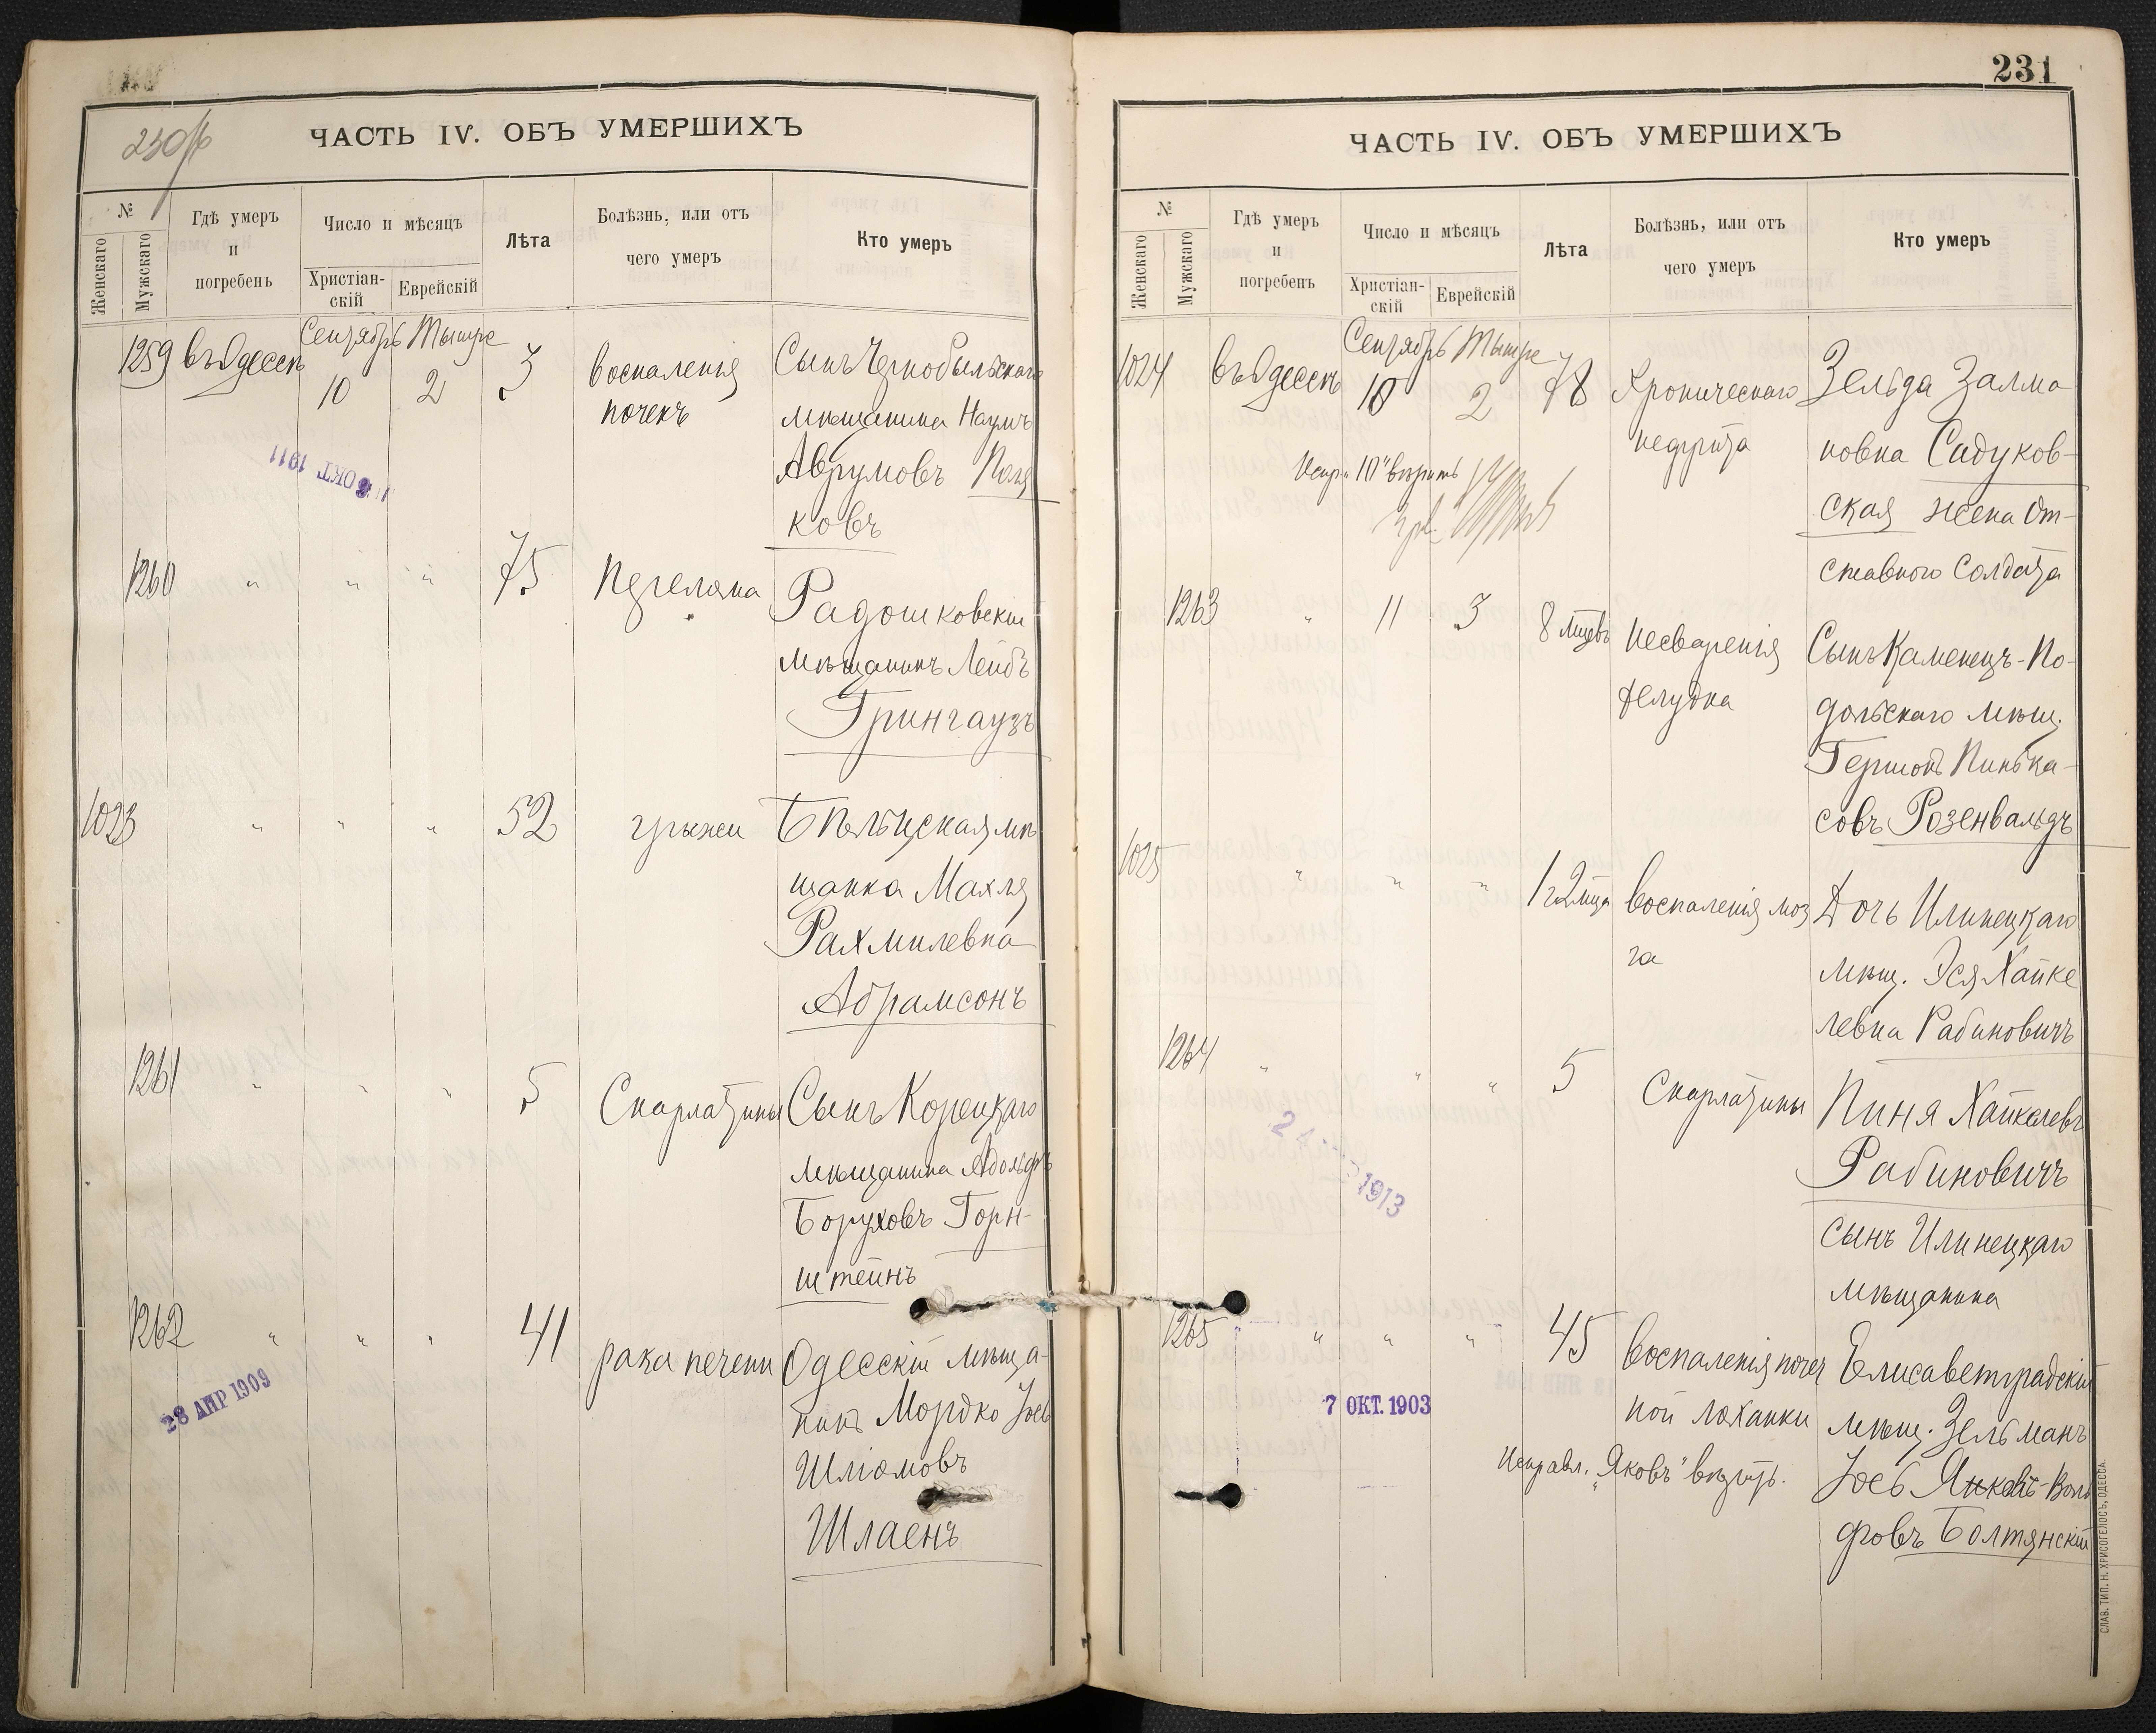 230об
ЧАСТЬ IV. ОБЪ УМЕРШИХЪ
№
Женскаго
Мужскаго
Гдѣ умеръ
и
погребенъ
Число и мѣсяцъ
Христіан-
скій
Еврейскій
Лѣта
Болѣзнь, или отъ
чего умеръ
Кто умеръ
Сентябрь Тышре
1259 въ Одессѣ 10 2 3 воспаленія
почекъ
Сынъ Чернобыльскаго
мѣщанина Наумъ
Аврумовъ Поля
ковъ
ОКТ 1911
1260 " " " 75
Радошковскій
мѣщанинъ Лейбъ
Грингаузъ
1023 " " " 52 грыжи
Бѣльцская мѣ
щанка Махля
Рахмилевна
Абрамсонъ
1261 " " " 5 Скарлатины
Сынъ Корецкаго
мѣщанина Адольфъ
Боруховъ Горн-
штейнъ
1262 " " " 41 рака печени
Одесскій мѣща-
нинъ Мордко Іось
Шліомовъ
Шлаенъ
28 АПР 1909
231
ЧАСТЬ IV. ОБЪ УМЕРШИХЪ
№
Женскаго
Мужскаго
Гдѣ умеръ
и
погребенъ
Число и мѣсяцъ
Христіан-
скій
Еврейскій
Лѣта
Болѣзнь, или отъ
чего умеръ
Кто умеръ
Сентябрь Тышре
1024 въ Одессѣ 10 2 78 Хроническаго
нефрита
Зельда Залма
новна Садуков-
ская жена От-
ставного Солдата
Испр. "10" вѣрить
1263 " 11 3 8 мѣцевъ несваренія
желудка
Сынъ Каменецъ-По-
дольскаго мѣщ.
Гершонъ Пинька-
совъ Розенвальдъ
1025 " " " 1 г 2 мѣца воспаленія моз
га
Дочь Илинецкаго
мѣщ. Эся Хайке
левна Рабиновичъ
1264 " " " 5 Скарлатины
Пиня Хайкелевъ
Рабиновичъ
сынъ Илинецкаго
мѣщанина
1913
1265 " " " 45 воспаленія почеч
ной лоханки
Елисаветградскій
мѣщ. Зельманъ
Іось Янкевъ-Воль
фовъ Болтянскій
7 ОКТ. 1903
Исправл. "Яковъ" вѣрить.
СЛАВ. ТИП. Н. ХРИСОГЕЛОСЪ, ОДЕССА.